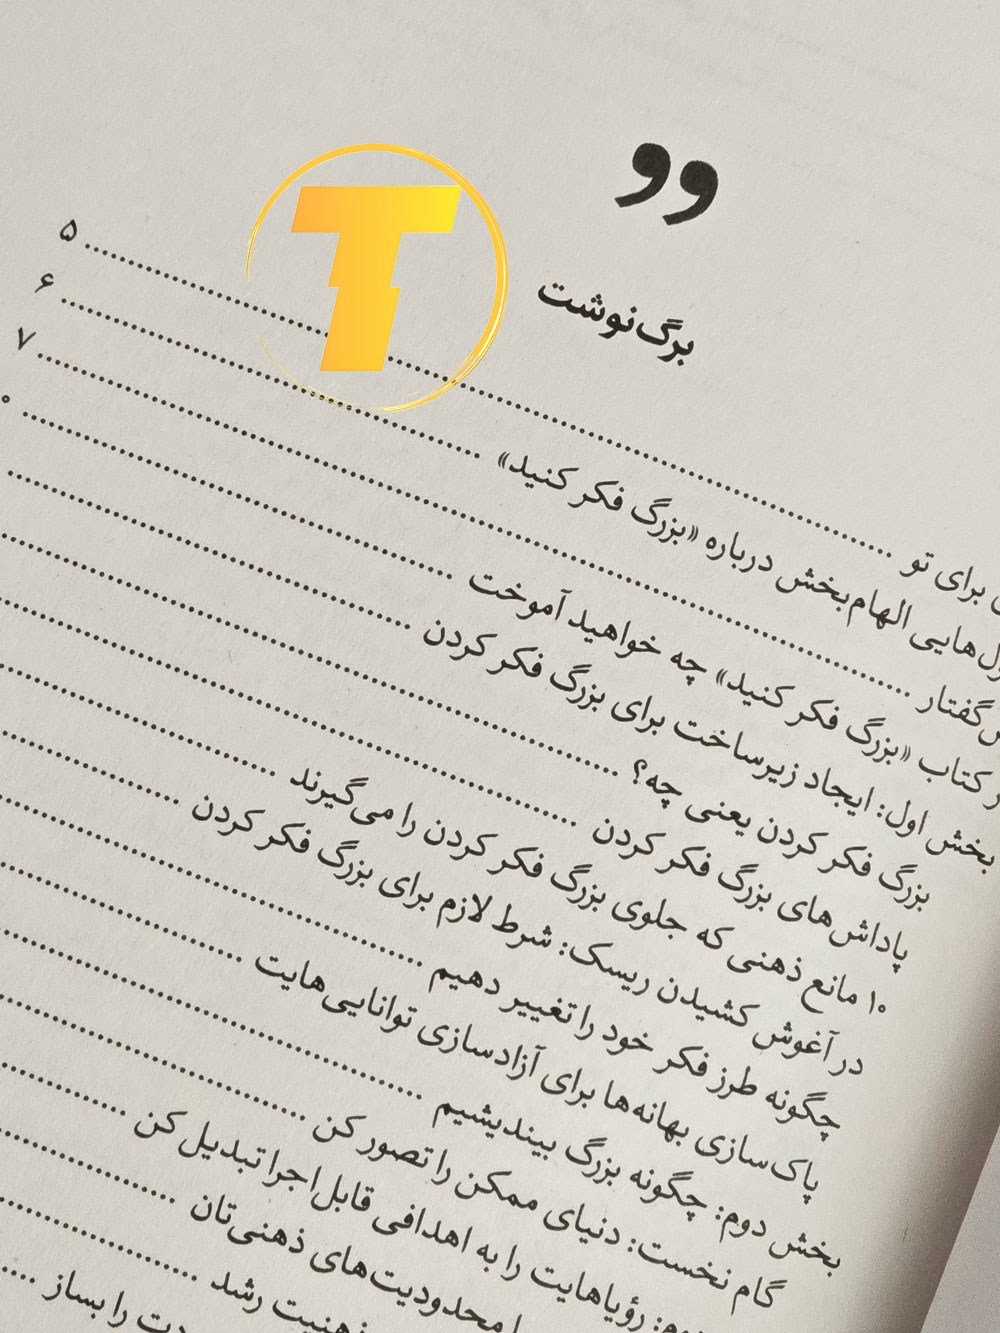 T
برگ‌نوشت
برای تو ........ ۵
الهام‌بخش درباره «بزرگ فکر کنید» ........ ۶
........ ۷
کتاب «بزرگ فکر کنید» چه خواهید آموخت ........
بخش اول: ایجاد زیرساخت برای بزرگ فکر کردن ........
بزرگ فکر کردن یعنی چه؟ ........
پاداش‌های بزرگ فکر کردن ........
۱۰ مانع ذهنی که جلوی بزرگ فکر کردن را می‌گیرند ........
در آغوش کشیدن ریسک: شرط لازم برای بزرگ فکر کردن ........
چگونه طرز فکر خود را تغییر دهیم ........
پاک‌سازی بهانه‌ها برای آزادسازی توانایی‌هایت ........
بخش دوم: چگونه بزرگ بیندیشیم ........
گام نخست: دنیای ممکن را تصور کن ........
رؤیاهایت را به اهدافی قابل‌اجرا تبدیل کن ........
محدودیت‌های ذهنی‌تان ........
ذهنیت رشد ........
را بساز ........